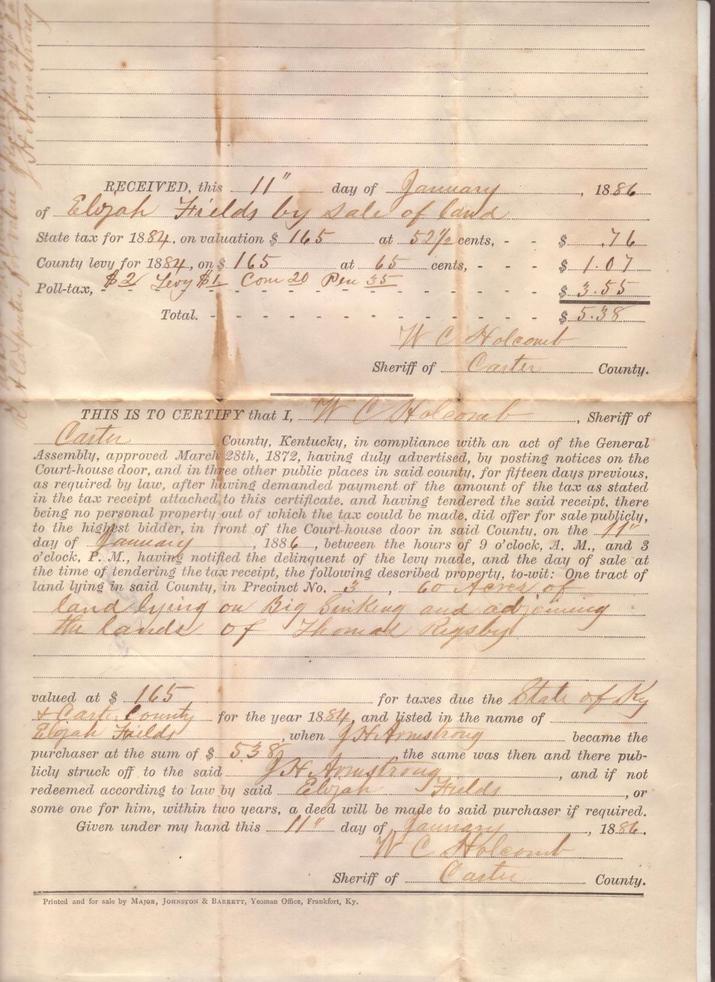 J. H. Armstrong
RECEIVED, this 11" day of January, 1886
of Elijah Fields by sale of land
State tax for 1884, on valuation $ 165 at 52½ cents, - - $ .76
County levy for 1884, on $ 165 at 65 cents, - - $ 1.07
Poll-tax, $2 Levy $1. Com 20 Pen 35 - - - - - $ 3.55
Total. - - - - - - - - - - - $ 5.38
W C Holcomb
Sheriff of Carter County.
THIS IS TO CERTIFY that I, W C Holcomb, Sheriff of
Carter County, Kentucky, in compliance with an act of the General
Assembly, approved March 28th, 1872, having duly advertised, by posting notices on the
Court-house door, and in three other public places in said county, for fifteen days previous,
as required by law, after having demanded payment of the amount of the tax as stated
in the tax receipt attached to this certificate, and having tendered the said receipt, there
being no personal property out of which the tax could be made, did offer for sale publicly,
to the highest bidder, in front of the Court-house door in said County, on the 11"
day of January, 1886, between the hours of 9 o'clock, A. M., and 3
o'clock, P. M., having notified the delinquent of the levy made, and the day of sale at
the time of tendering the tax receipt, the following described property, to-wit: One tract of
land lying in said County, in Precinct No. 3, 60 Acres of
land lying on Big Sinking and adjoining
the lands of Thomas Rigsby
valued at $ 165 for taxes due the State of Ky
& Carter County for the year 1884, and listed in the name of
Elijah Fields, when J H Armstrong became the
purchaser at the sum of $ 5.38 the same was then and there pub-
licly struck off to the said J H Armstrong, and if not
redeemed according to law by said Elijah Fields, or
some one for him, within two years, a deed will be made to said purchaser if required.
Given under my hand this 11" day of January, 1886.
W C Holcomb
Sheriff of Carter County.
Printed and for sale by MAJOR, JOHNSTON & BARRETT, Yeoman Office, Frankfort, Ky.